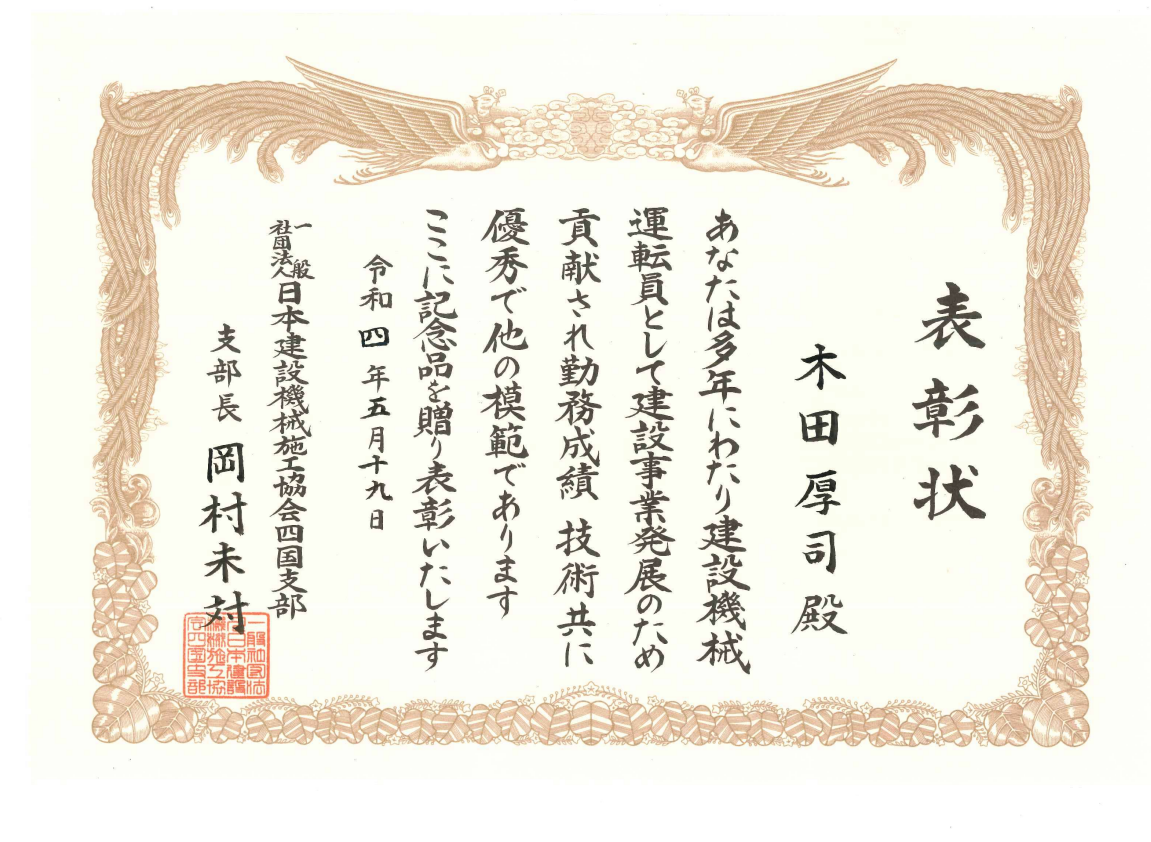 表彰状
木田厚司殿
あなたは多年にわたり建設機械
運転員として建設事業発展のため
貢献され勤務成績 技術共に
優秀で他の模範であります
ここに記念品を贈り表彰いたします
令和四年五月十九日
一般社団法人日本建設機械施工協会四国支部
支部長 岡村未対
一般社団法
人日本建設
機械施工協
会四国支部